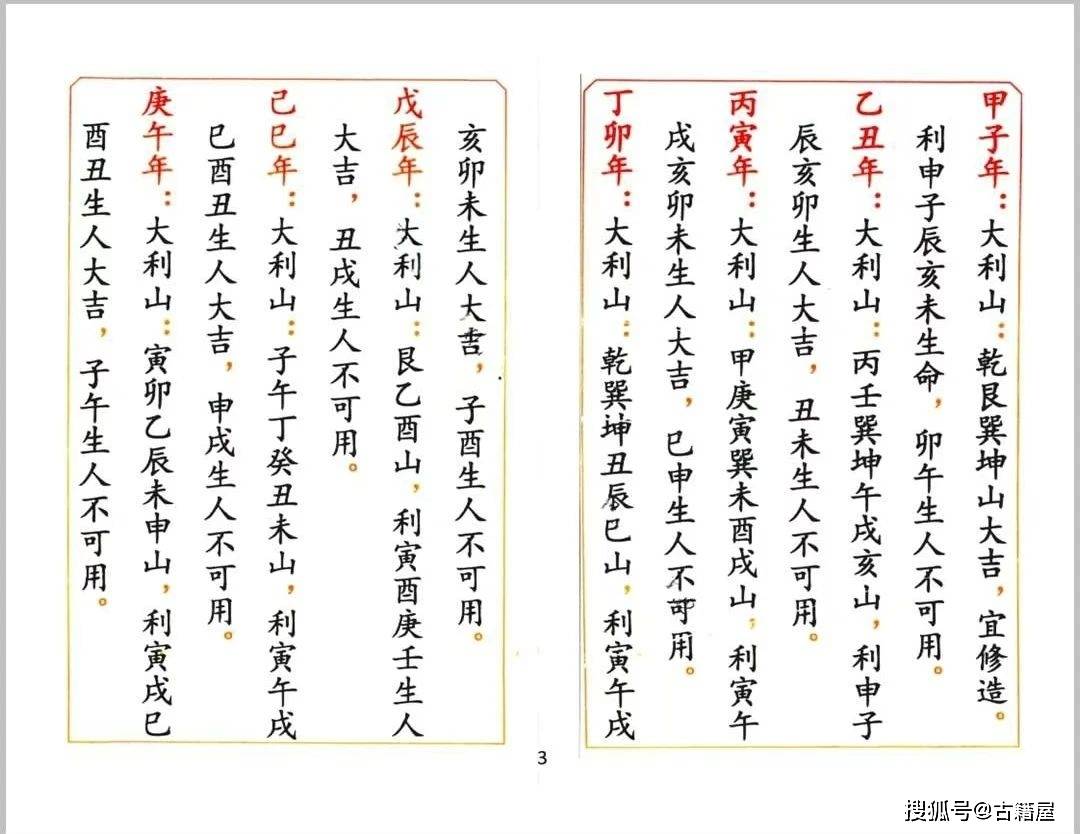 甲子年：大利山：乾艮巽坤山大吉，宜修造。
利申子辰亥未生命，卯午生人不可用。
乙丑年：大利山：丙壬巽坤午戌亥山，利申子
辰亥卯生人大吉，丑未生人不可用。
丙寅年：大利山：甲庚寅巽未酉戌山，利寅午
戌亥卯未生人大吉，巳申生人不可用。
丁卯年：大利山：乾巽坤丑辰巳山，利寅午戌
亥卯未生人大吉，子酉生人不可用。
戊辰年：大利山：艮乙酉山，利寅酉庚壬生人
大吉，丑戌生人不可用。
己巳年：大利山：子午丁癸丑未山，利寅午戌
巳酉丑生人大吉，申戌生人不可用。
庚午年：大利山：寅卯乙辰未申山，利寅戌巳
酉丑生人大吉，子午生人不可用。
3
搜狐号@古籍屋